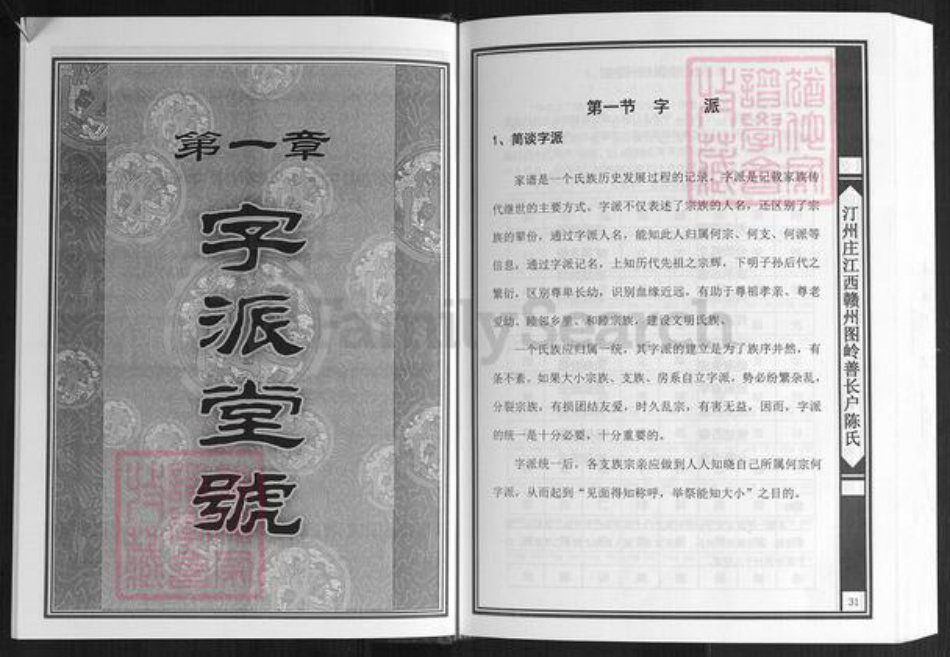 第一章
字派堂號
第一节 字 派
1、简谈字派
家谱是一个氏族历史发展过程的记录。字派是记载家族传
代继世的主要方式。字派不仅表述了宗族的人名，还区别了宗
族的辈份，通过字派人名，能知此人归属何宗、何支、何派等
信息。通过字派记名，上知历代先祖之宗辉，下明子孙后代之
繁衍。区别尊卑长幼，识别血缘近远，有助于尊祖孝亲、尊老
爱幼、睦邻乡里、和睦宗族，建设文明氏族。
一个氏族应归属一统，其字派的建立是为了族序井然，有
条不紊。如果大小宗族、支族、房系自立字派，势必纷繁杂乱，
分裂宗族，有损团结友爱，时久乱宗，有害无益，因而，字派
的统一是十分必要、十分重要的。
字派统一后，各支族宗亲应做到人人知晓自己所属何宗何
字派，从而起到“见面得知称呼，举祭能知大小”之目的。
汀州庄江西赣州图岭善长户陈氏
31
FamilySearch